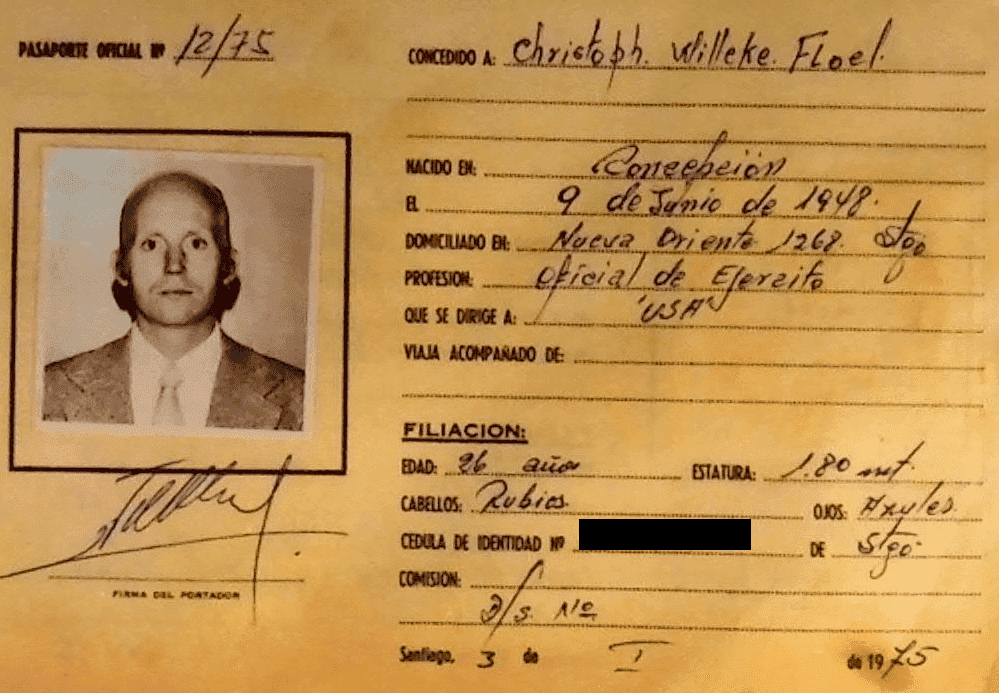 PASAPORTE OFICIAL Nº 12/75
CONCEDIDO A: Christoph. Willeke. Floel.
NACIDO EN: Concepción
EL 9 de Junio de 1948.
DOMICILIADO EN: Nueva Oriente 1268. Stgo
PROFESION: Oficial de Ejercito
QUE SE DIRIGE A: "USA"
VIAJA ACOMPAÑADO DE:
FILIACION:
EDAD: 26 años ESTATURA: 1.80 mt.
CABELLOS: Rubios. OJOS: Azules.
CEDULA DE IDENTIDAD Nº DE Stgo.
COMISION:
D/s. Nº
Santiago, 3 de I de 1975
FIRMA DEL PORTADOR